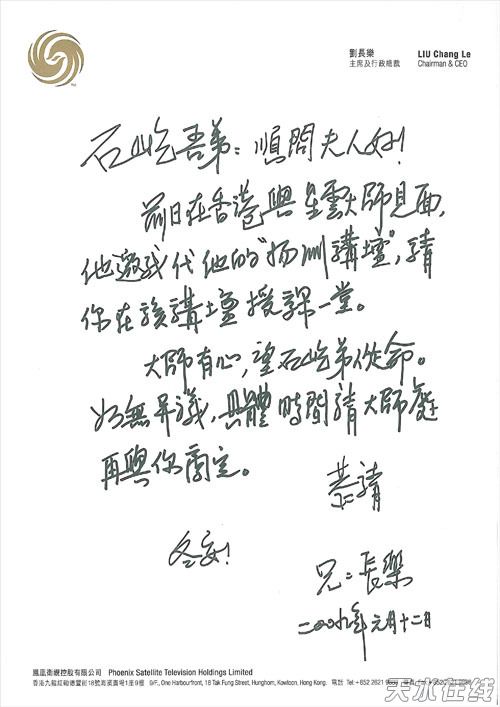 劉長樂 LIU Chang Le
主席及行政總裁 Chairman & CEO
石屹吾弟：順問夫人好！
前日在香港與星雲大師見面，
他邀我代他的“扬州講壇”，請
你在該講壇授課一堂。
大師有心，望石屹弟從命。
如無异議，具體時間請大師處
再與你商定。
恭請
冬安！
兄：長樂
二〇〇九年元月十二日
鳳凰衛視控股有限公司 Phoenix Satellite Television Holdings Limited
香港九龍紅磡德豐街18號海濱廣場1座9樓 9/F., One Harbourfront, 18 Tak Fung Street, Hunghom, Kowloon, Hong Kong. 電話 Tel: +852 2621
天水在线